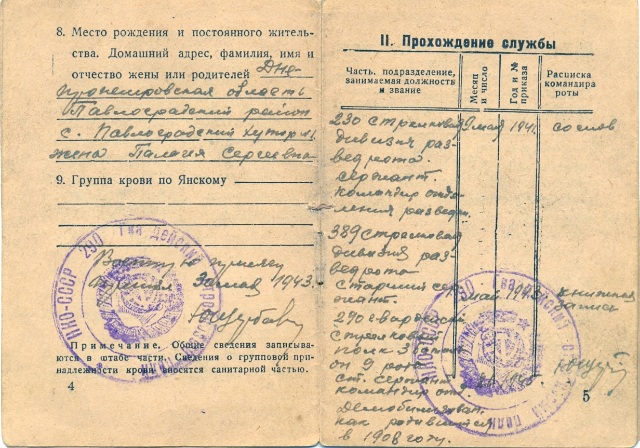 8. Место рождения и постоянного житель-
ства. Домашний адрес, фамилия, имя и
отчество жены или родителей Дне-
пропетровская область
Павлоградский район
с. Павлоградский Хутора
жена Палагия Сергеевна
9. Группа крови по Янскому
НКО-СССР 290
Военную присягу
принял 3 мая 1943.
Примечание. Общие сведения записыва-
ются в штабе части. Сведения о групповой при-
надлежности крови вносятся санитарной частью.
4
II. Прохождение службы
Часть, подразделение,
занимаемая должность
и звание
Месяц
и число
Год и №
приказа
Расписка
командира
роты
230 стрелковая 9 мая 1941 со слов
дивизия раз-
ведрота.
сержант
командир отде-
ления разведки
389 стрелковая
дивизия раз-
ведрота
старший сер-
жант. май 1943 книжная
запись
290 гвардейск
стрелковый
полк 3 бат
он 9 рота
ст. сержант 1945
командир отд
Демобилизован,
как родившийся
в 1908 году.
5